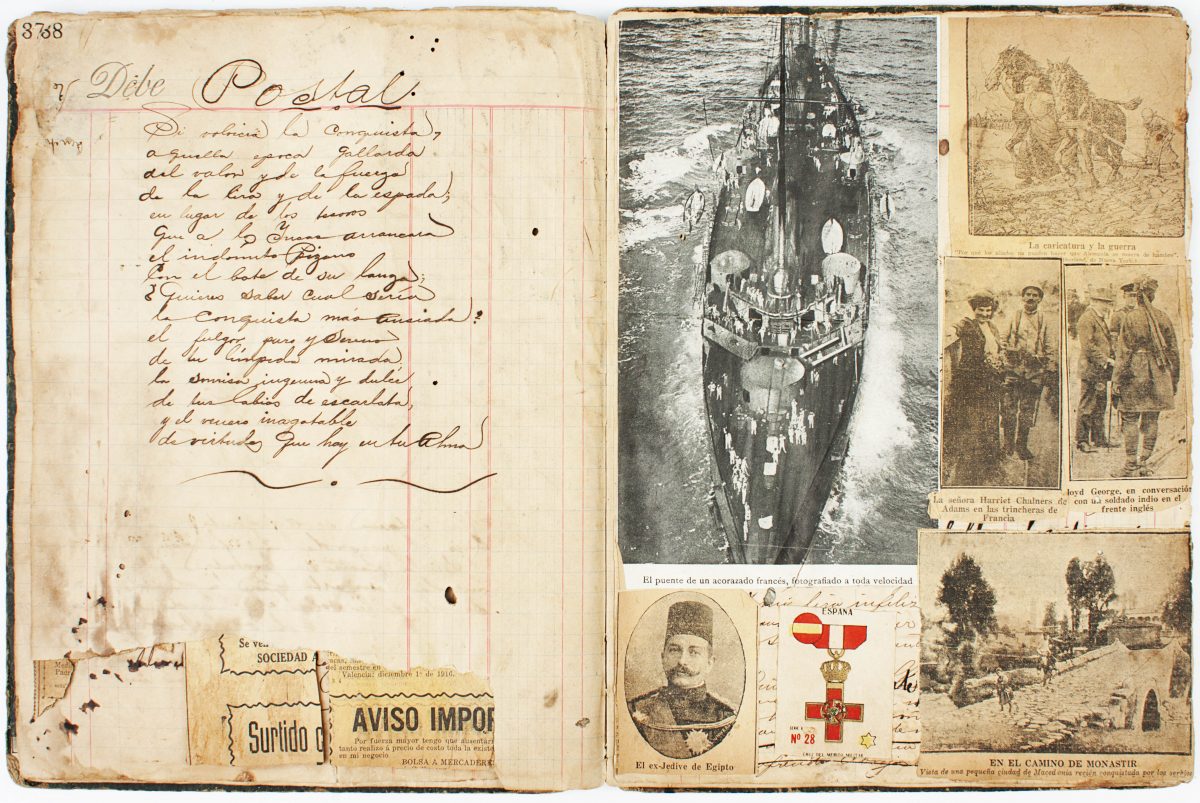 3738
Debe Postal.
Si volviera la conquista,
aquella epoca gallarda
del valor y de la fuerza
de la lira y de la espada;
en lugar de los tesoros
que a los Incas arrancara
el indomito Pizarro
con el bote de su lanza;
¿Quieres saber cual seria
la conquista más ansiada?
el fulgor puro y sereno
de tu limpida mirada,
la sonrisa ingenua y dulce
de tus labios de escarlata,
y el venero inagotable
de virtudes que hay en tu alma
Se ven
SOCIEDAD A
Surtido
del semestre en
Valencia: diciembre 1º de 1916.
AVISO IMPOR
Por fuerza mayor tengo que ausentar
tanto realizo á precio de costo toda la existe
en mi negocio.
BOLSA A MERCADERE
El puente de un acorazado francés, fotografiado a toda velocidad
La caricatura y la guerra
La señora Harriet Chalners de
Adams en las trincheras de
Francia
loyd George, en conversación
con un soldado indio en el
frente inglés
El ex-Jedive de Egipto
ESPAÑA
SERIE
Nº 28
CRUZ DEL MERITO MILITAR
EN EL CAMINO DE MONASTIR
Vista de una pequeña ciudad de Macedonia recien conquistada por los serbios